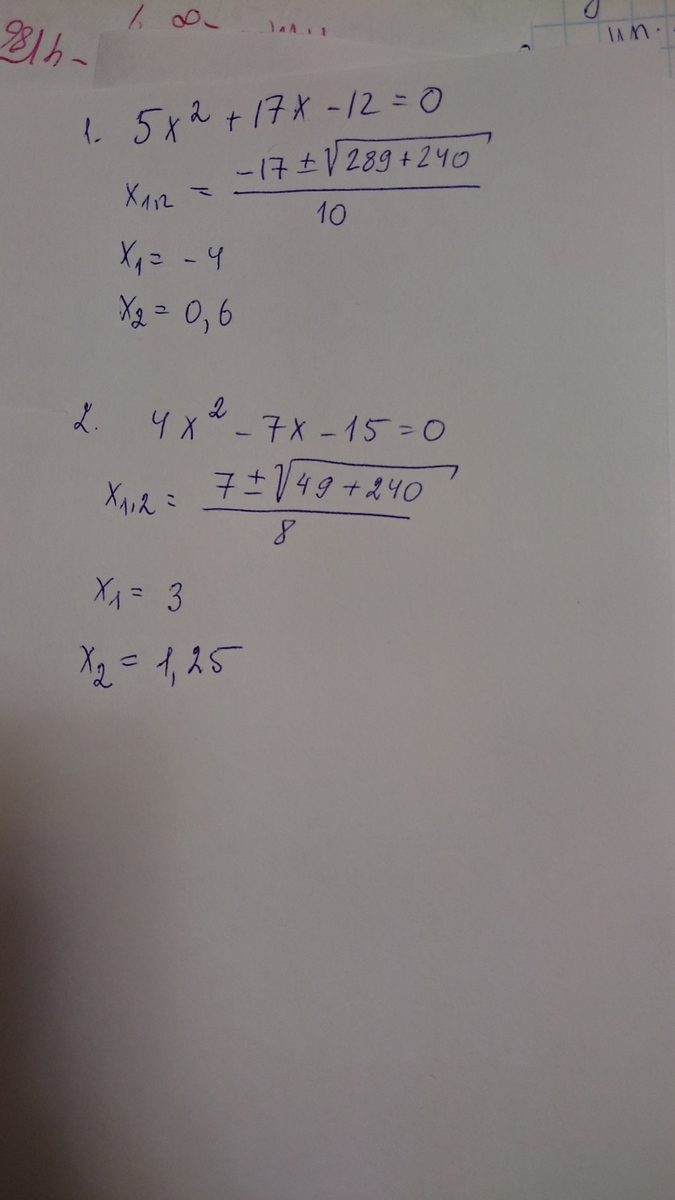 1. 5x² + 17x - 12 = 0
x₁,₂ = (-17 ± √(289 + 240)) / 10
x₁ = -4
x₂ = 0,6
2. 4x² - 7x - 15 = 0
x₁,₂ = (7 ± √(49 + 240)) / 8
x₁ = 3
x₂ = 1,25